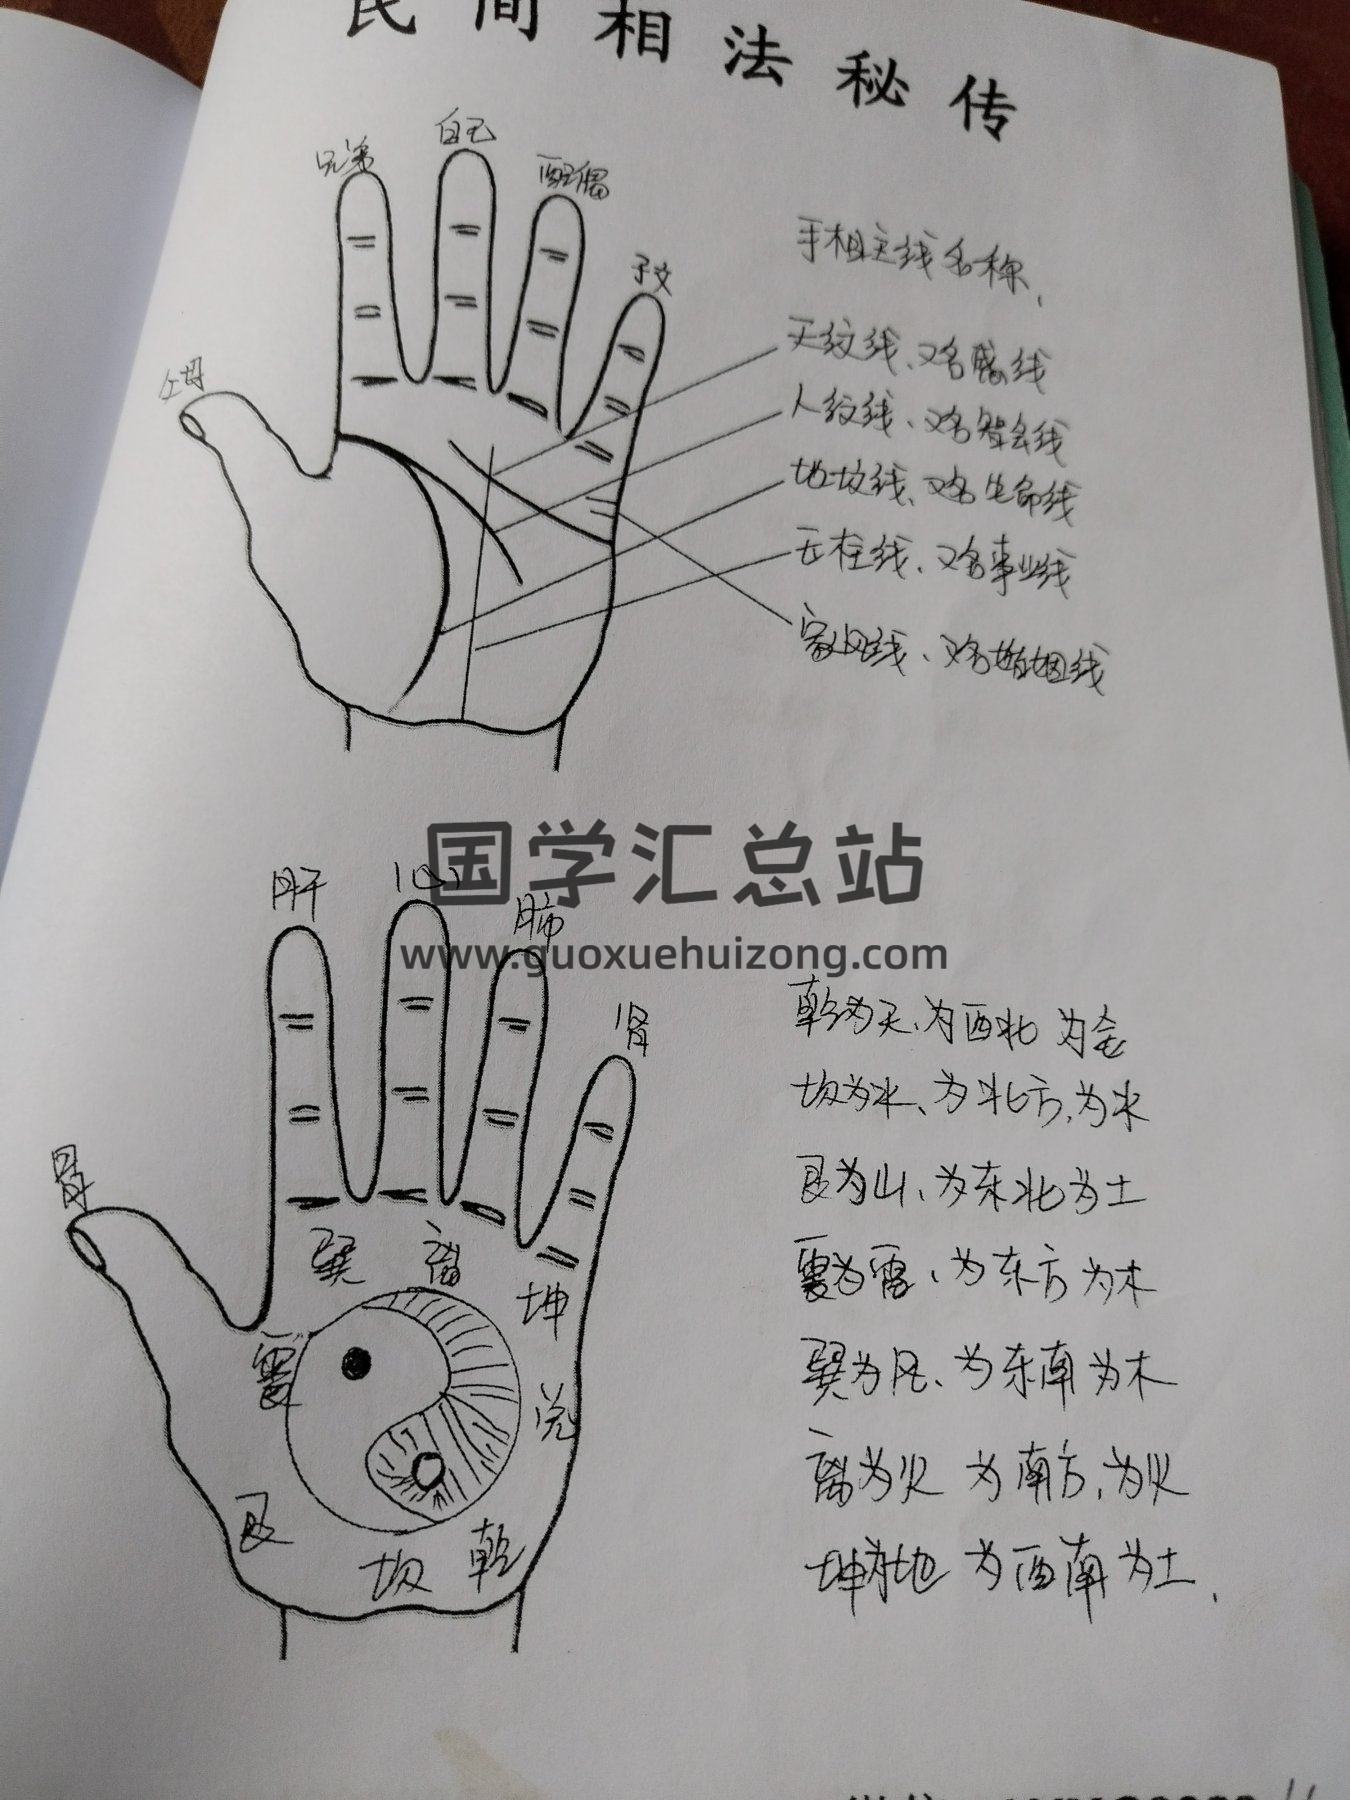 民间相法秘传
自己
兄弟
配偶
子女
父母
手相主线名称、
天纹线、又名感线
人纹线、又名智会线
地纹线、又名生命线
玉柱线、又名事业线
家风线、又名婚姻线
国学汇总站
www.guoxuehuizong.com
肝
心
肺
肾
胃
巽
离
坤
震
兑
艮
坎
乾
乾为天、为西北 为金
坎为水、为北方,为水
艮为山、为东北为土
震为雷、为东方为木
巽为风、为东南为木
离为火 为南方,为火
坤为地 为西南为土.